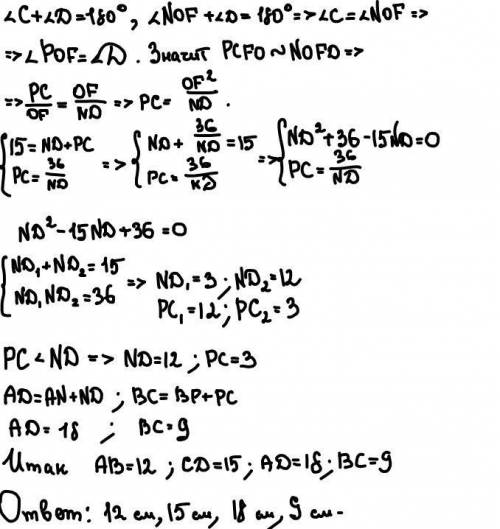 ∠C+∠D=180°, ∠NOF+∠D=180°=>∠C=∠NOF=>
=>∠POF=∠D. Значит PCFO~NOFD=>
=> PC/OF = OF/ND => PC= OF²/ND.
{15=ND+PC; PC=36/ND => {ND+36/KD=15; PC=36/KD => {ND²+36-15ND=0; PC=36/ND
ND²-15ND+36=0
{ND₁+ND₂=15; ND₁ND₂=36 => ND₁=3; ND₂=12
PC₁=12; PC₂=3
PC<ND => ND=12; PC=3
AD=AN+ND; BC=BP+PC
AD=18; BC=9
Итак AB=12; CD=15; AD=18; BC=9
Ответ: 12 см, 15 см, 18 см, 9 см-